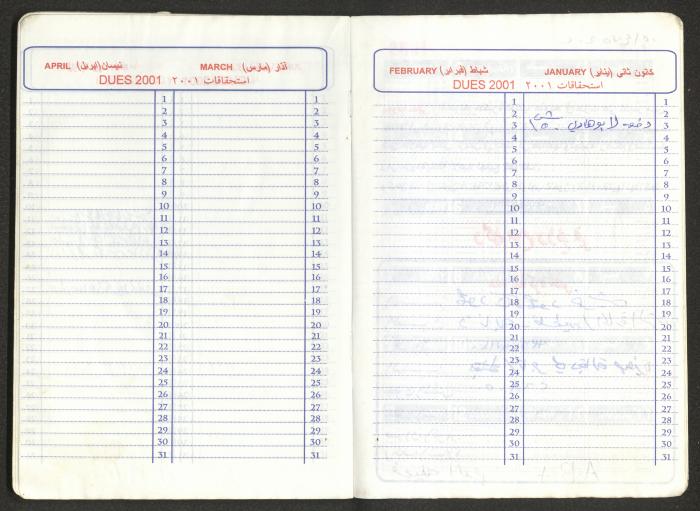 APRIL نيسان (ابريل) MARCH آذار (مارس)
DUES 2001 استحقاقات ٢٠٠١
1 1
2 2
3 3
4 4
5 5
6 6
7 7
8 8
9 9
10 10
11 11
12 12
13 13
14 14
15 15
16 16
17 17
18 18
19 19
20 20
21 21
22 22
23 23
24 24
25 25
26 26
27 27
28 28
29 29
30 30
31 31
FEBRUARY شباط (فبراير) JANUARY كانون ثاني (يناير)
DUES 2001 استحقاقات ٢٠٠١
1 1
2 2
3 دفعه لابو هادي 3
4 4
5 5
6 6
7 7
8 8
9 9
10 10
11 11
12 12
13 13
14 14
15 15
16 16
17 17
18 18
19 19
20 20
21 21
22 22
23 23
24 24
25 25
26 26
27 27
28 28
29 29
30 30
31 31